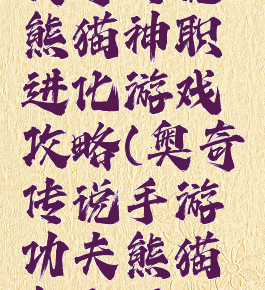 熊猫神职
进化游戏
攻略(奥奇
传说手游
功夫熊猫